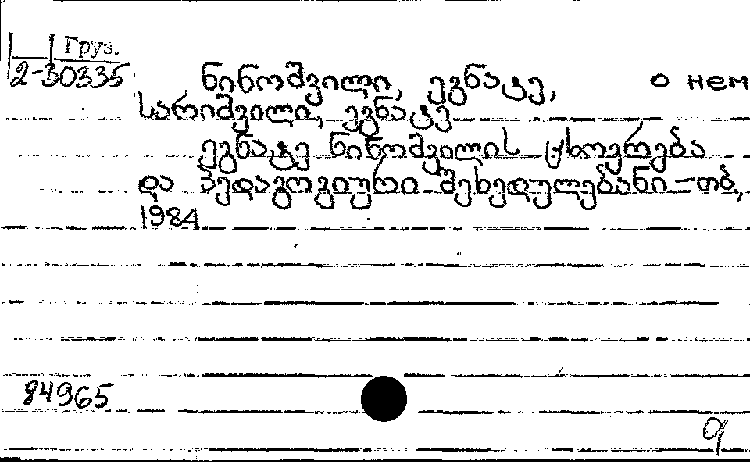 Груз.
2-30335
ნინოშვილი, ეგნატე, о нем
სარიშვილი, ეგნატე
ეგნატე ნინოშვილის ცხოვრება
და პედაგოგიური შეხედულებანი – თბ,
1984
84965
9